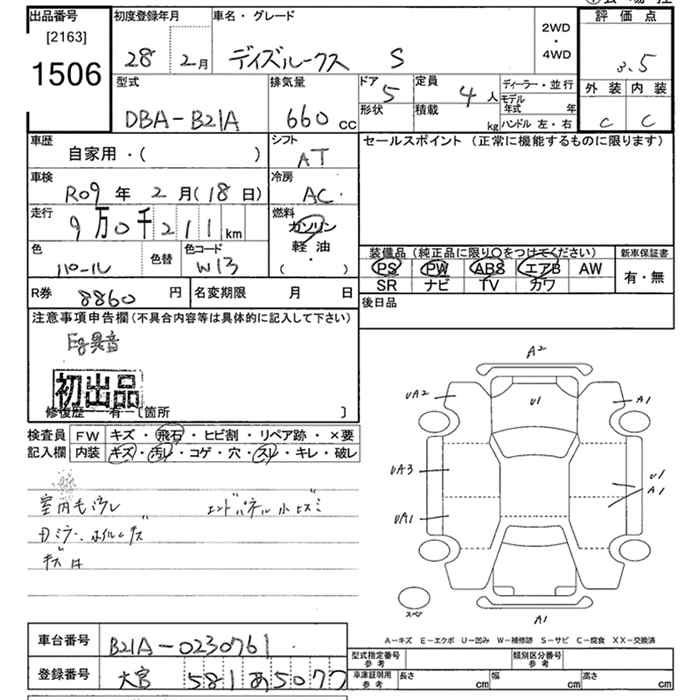 出品番号
[2163]
1506
初度登録年月
28 2月
車名・グレード
デイズルークス S
2WD
・
4WD
評価点
3.5
外装 内装
C C
型式
DBA-B21A
排気量
660 cc
ドア 5
形状
定員 4人
積載 kg
ディーラー・並行
モデル年式 年
ハンドル 左・右
車歴
自家用・( )
シフト
AT
セールスポイント (正常に機能するものに限ります)
車検
R09年 2月(18日)
冷房
AC
走行
9万0千211km
燃料
ガソリン
軽油
( )
色
パール
色替
色コード
W13
装備品 (純正品に限り○をつけてください)
PS PW ABS エアB AW
SR ナビ TV カワ
新車保証書
有・無
R券 8860円
名変期限 月 日
後日品
注意事項申告欄(不具合内容等は具体的に記入して下さい)
Eg異音
初出品
修復歴 有 [箇所 ]
検査員記入欄
FW キズ・飛石・ヒビ割・リペア跡・×要
内装 キズ・汚レ・コゲ・穴・スレ・キレ・破レ
エンドパネル小ヒズミ
A2
UA2
U1
A1
UA3
U1
A1
UA1
スペア
A1
A-キズ E-エクボ U-凹み W-補修跡 S-サビ C-腐食 XX-交換済
車台番号
B21A-0230761
登録番号
大宮 581 あ5077
型式指定番号 参考
類別区分番号 参考
車庫証明用 参考
長さ cm
幅 cm
高さ cm